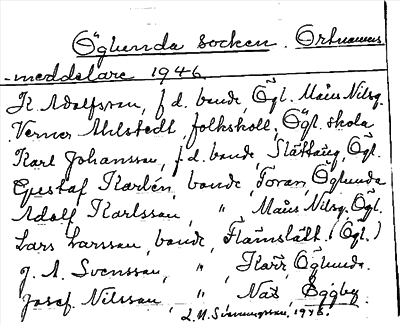 Öglunda socken. Ortnamns-
meddelare 1946
K. Adolfsson, f.d. bonde, Ögl. Måns Nilsg.
Verner Ahlstedt, folkskoll., Ögl. skola
Karl Johansson, f.d. bonde, Slättäng, Ögl.
Gustaf Karlén, bonde, Toran, Öglunda
Adolf Karlsson, " Måns Nilsg. Ögl.
Lars Larsson, bonde, Flämslätt (Ögl.)
J. A. Svensson, " Kärr, Öglunda.
Josef Nilsson, " Näs, Eggby.
1946.